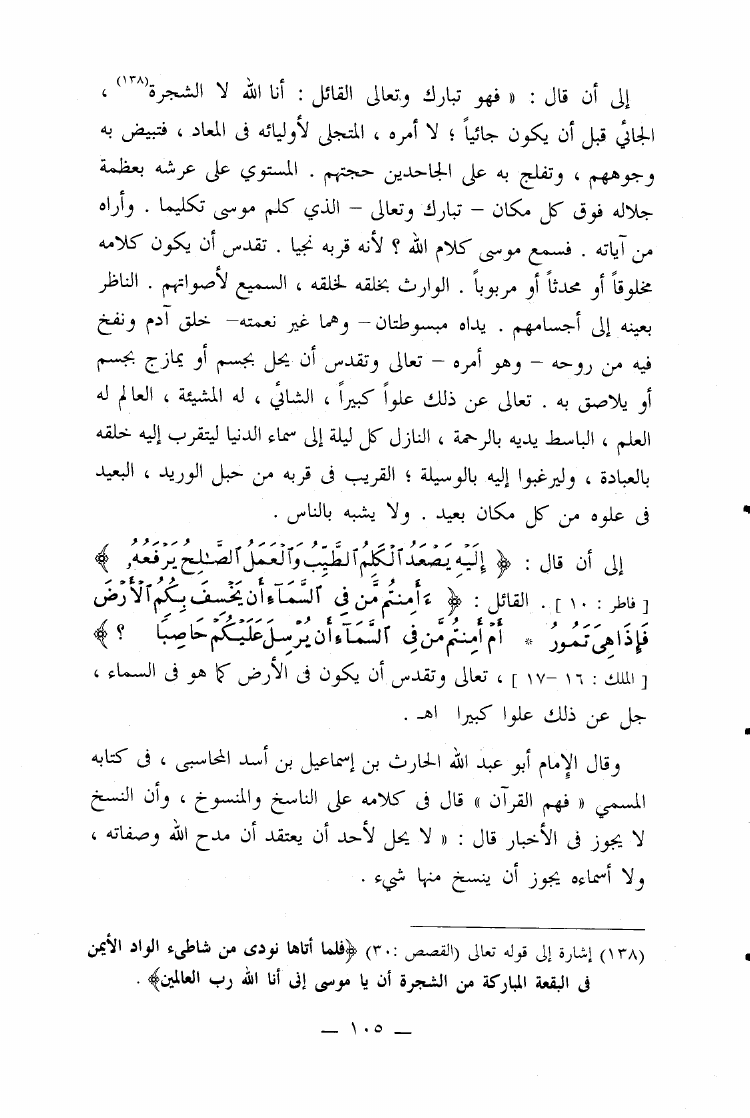 إلى أن قال : « فهو تبارك وتعالى القائل : أنا الله لا الشجرة(١٣٨) ،
الجائي قبل أن يكون جائياً ؛ لا أمره ، المتجلى لأوليائه فى المعاد ، فتبيض به
وجوههم ، وتفلج به على الجاحدين حجتهم . المستوي على عرشه بعظمة
جلاله فوق كل مكان – تبارك وتعالى – الذي كلم موسى تكليما . وأراه
من آياته . فسمع موسى كلام الله ؟ لأنه قربه نجيا . تقدس أن يكون كلامه
مخلوقاً أو محدثاً أو مربوباً . الوارث بخلقه لخلقه ، السميع لأصواتهم . الناظر
بعينه إلى أجسامهم . يداه مبسوطتان– وهما غير نعمته– خلق آدم ونفخ
فيه من روحه – وهو أمره – تعالى وتقدس أن يحل بجسم أو يمازج بجسم
أو يلاصق به . تعالى عن ذلك علواً كبيراً ، الشائي ، له المشيئة ، العالم له
العلم ، الباسط يديه بالرحمة ، النازل كل ليلة إلى سماء الدنيا ليتقرب إليه خلقه
بالعبادة ، وليرغبوا إليه بالوسيلة ؛ القريب فى قربه من حبل الوريد ، البعيد
فى علوه من كل مكان بعيد . ولا يشبه بالناس .
إلى أن قال : ﴿ إِلَيْهِ يَصْعَدُ ٱلْكَلِمُ ٱلطَّيِّبُ وَٱلْعَمَلُ ٱلصَّـٰلِحُ يَرْفَعُهُۥ ﴾
[ فاطر : ١٠ ] . القائل : ﴿ ءَأَمِنتُم مَّن فِى ٱلسَّمَآءِ أَن يَخْسِفَ بِكُمُ ٱلْأَرْضَ
فَإِذَا هِىَ تَمُورُ * أَمْ أَمِنتُم مَّن فِى ٱلسَّمَآءِ أَن يُرْسِلَ عَلَيْكُمْ حَاصِبًا ؟ ﴾
[ الملك : ١٦ –١٧ ] ، تعالى وتقدس أن يكون فى الأرض كما هو فى السماء ،
جل عن ذلك علوا كبيرا اهـ .
وقال الإمام أبو عبد الله الحارث بن إسماعيل بن أسد المحاسبى ، فى كتابه
المسمي « فهم القرآن » قال فى كلامه على الناسخ والمنسوخ ، وأن النسخ
لا يجوز فى الأخبار قال : « لا يحل لأحد أن يعتقد أن مدح الله وصفاته ،
ولا أسماءه يجوز أن ينسخ منها شيء .
(١٣٨) إشارة إلى قوله تعالى (القصص :٣٠) ﴿فلما أتاها نودى من شاطىء الواد الأيمن
فى البقعة المباركة من الشجرة أن يا موسى إنى أنا الله رب العالمين﴾ .
— ١٠٥ —